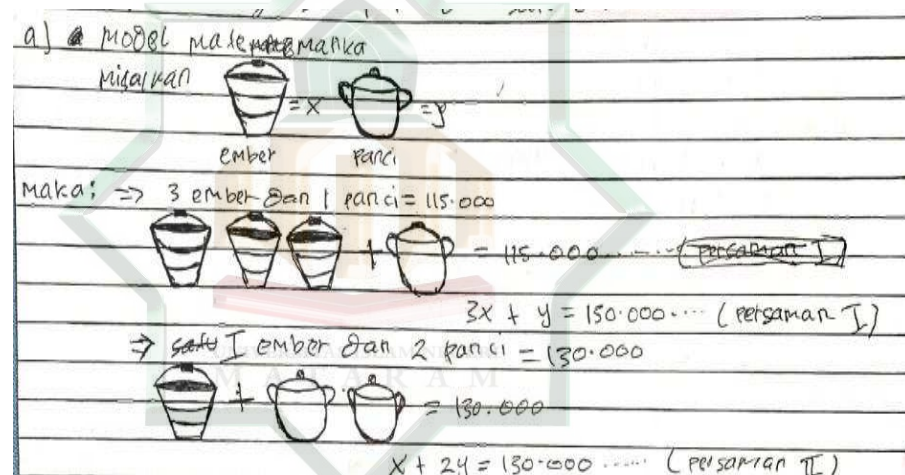 a) model matematika
misalkan
= x = y
ember panci
Maka: => 3 ember dan 1 panci = 115.000
+ = 115.000 ........ (persaman I)
3x + y = 150.000.... (persaman I)
=> satu I ember dan 2 panci = 130.000
MATARAM
+ = 130.000
x + 2y = 130.000 ..... (persaman II)